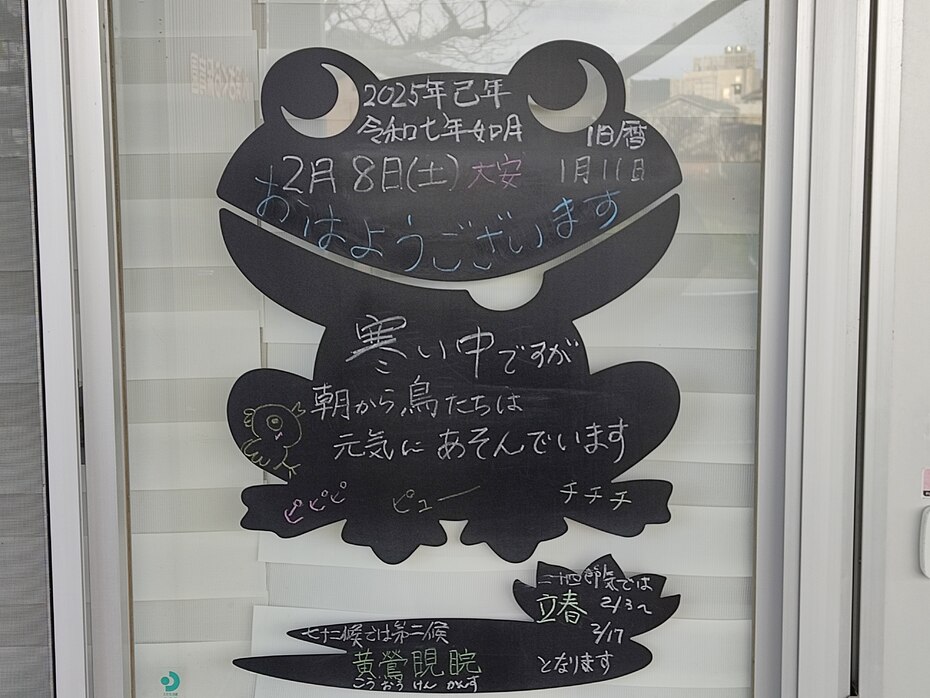 2025年己年
令和七年如月
旧暦
2月8日(土)大安 1月11日
おはようございます
寒い中ですが
朝から鳥たちは
元気にあそんでいます
ピピピ ピュー チチチ
二十四節気では
立春 2/3~
2/17
となります
七十二候では第二候
黄鶯睍睆
こうおうけんかんす